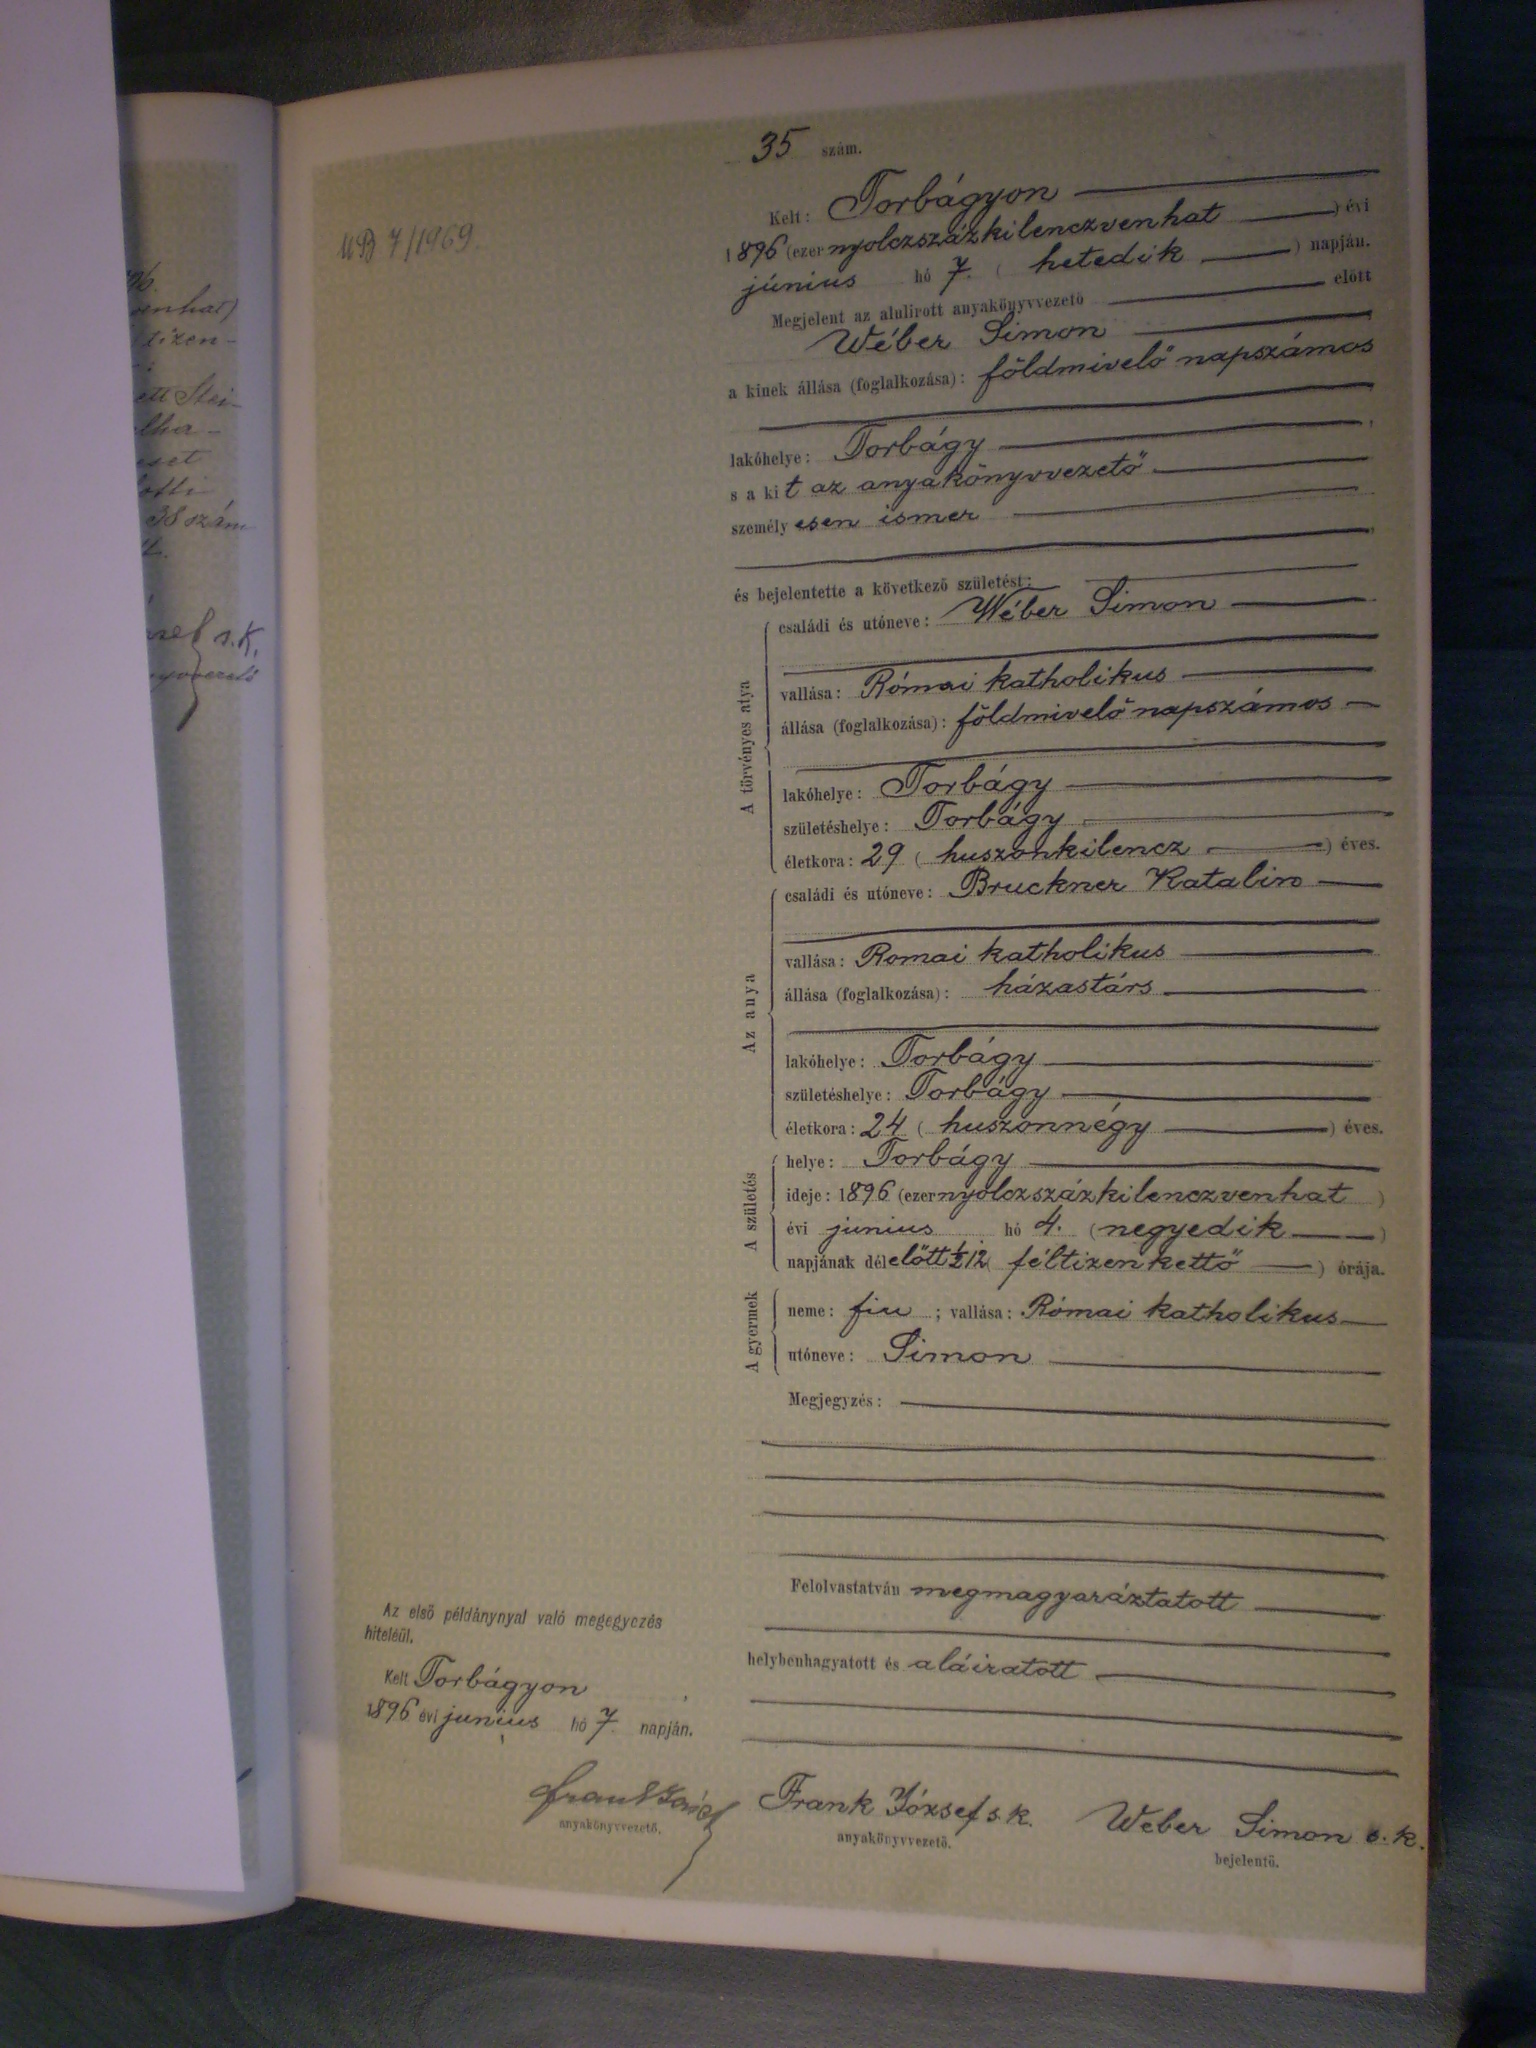 35 szám.
Kelt: Torbágyon
1896 (ezernyolczszázkilenczvenhat) évi
június hó 7. (hetedik) napján.
Megjelent az alulirott anyakönyvvezető előtt
Wéber Simon
a kinek állása (foglalkozása): földmivelő napszámos
lakóhelye: Torbágy
s a kit az anyakönyvvezető
személyesen ismer
és bejelentette a következő születést:
A törvényes atya
családi és utóneve: Wéber Simon
vallása: Római katholikus
állása (foglalkozása): földmivelő napszámos
lakóhelye: Torbágy
születéshelye: Torbágy
életkora: 29 (huszonkilencz) éves.
Az anya
családi és utóneve: Bruckner Katalin
vallása: Romai katholikus
állása (foglalkozása): házastárs
lakóhelye: Torbágy
születéshelye: Torbágy
életkora: 24 (huszonnégy) éves.
A születés
helye: Torbágy
ideje: 1896 (ezernyolczszázkilenczvenhat)
évi junius hó 4. (negyedik)
napjának délelőtt ½12 (féltizenkettő) órája.
A gyermek
neme: fiu; vallása: Római katholikus
utóneve: Simon
Megjegyzés:
Felolvastatván megmagyaráztatott
helybenhagyatott és aláiratott
Frank József s. k.
anyakönyvvezető.
Weber Simon s. k.
bejelentő.
7/1969.
Az első példánynyal való megegyezés
hiteléül.
Kelt Torbágyon
1896 évi junius hó 7. napján.
Frank József
anyakönyvvezető.
enhat)
tizen-
38 szám
s. k.